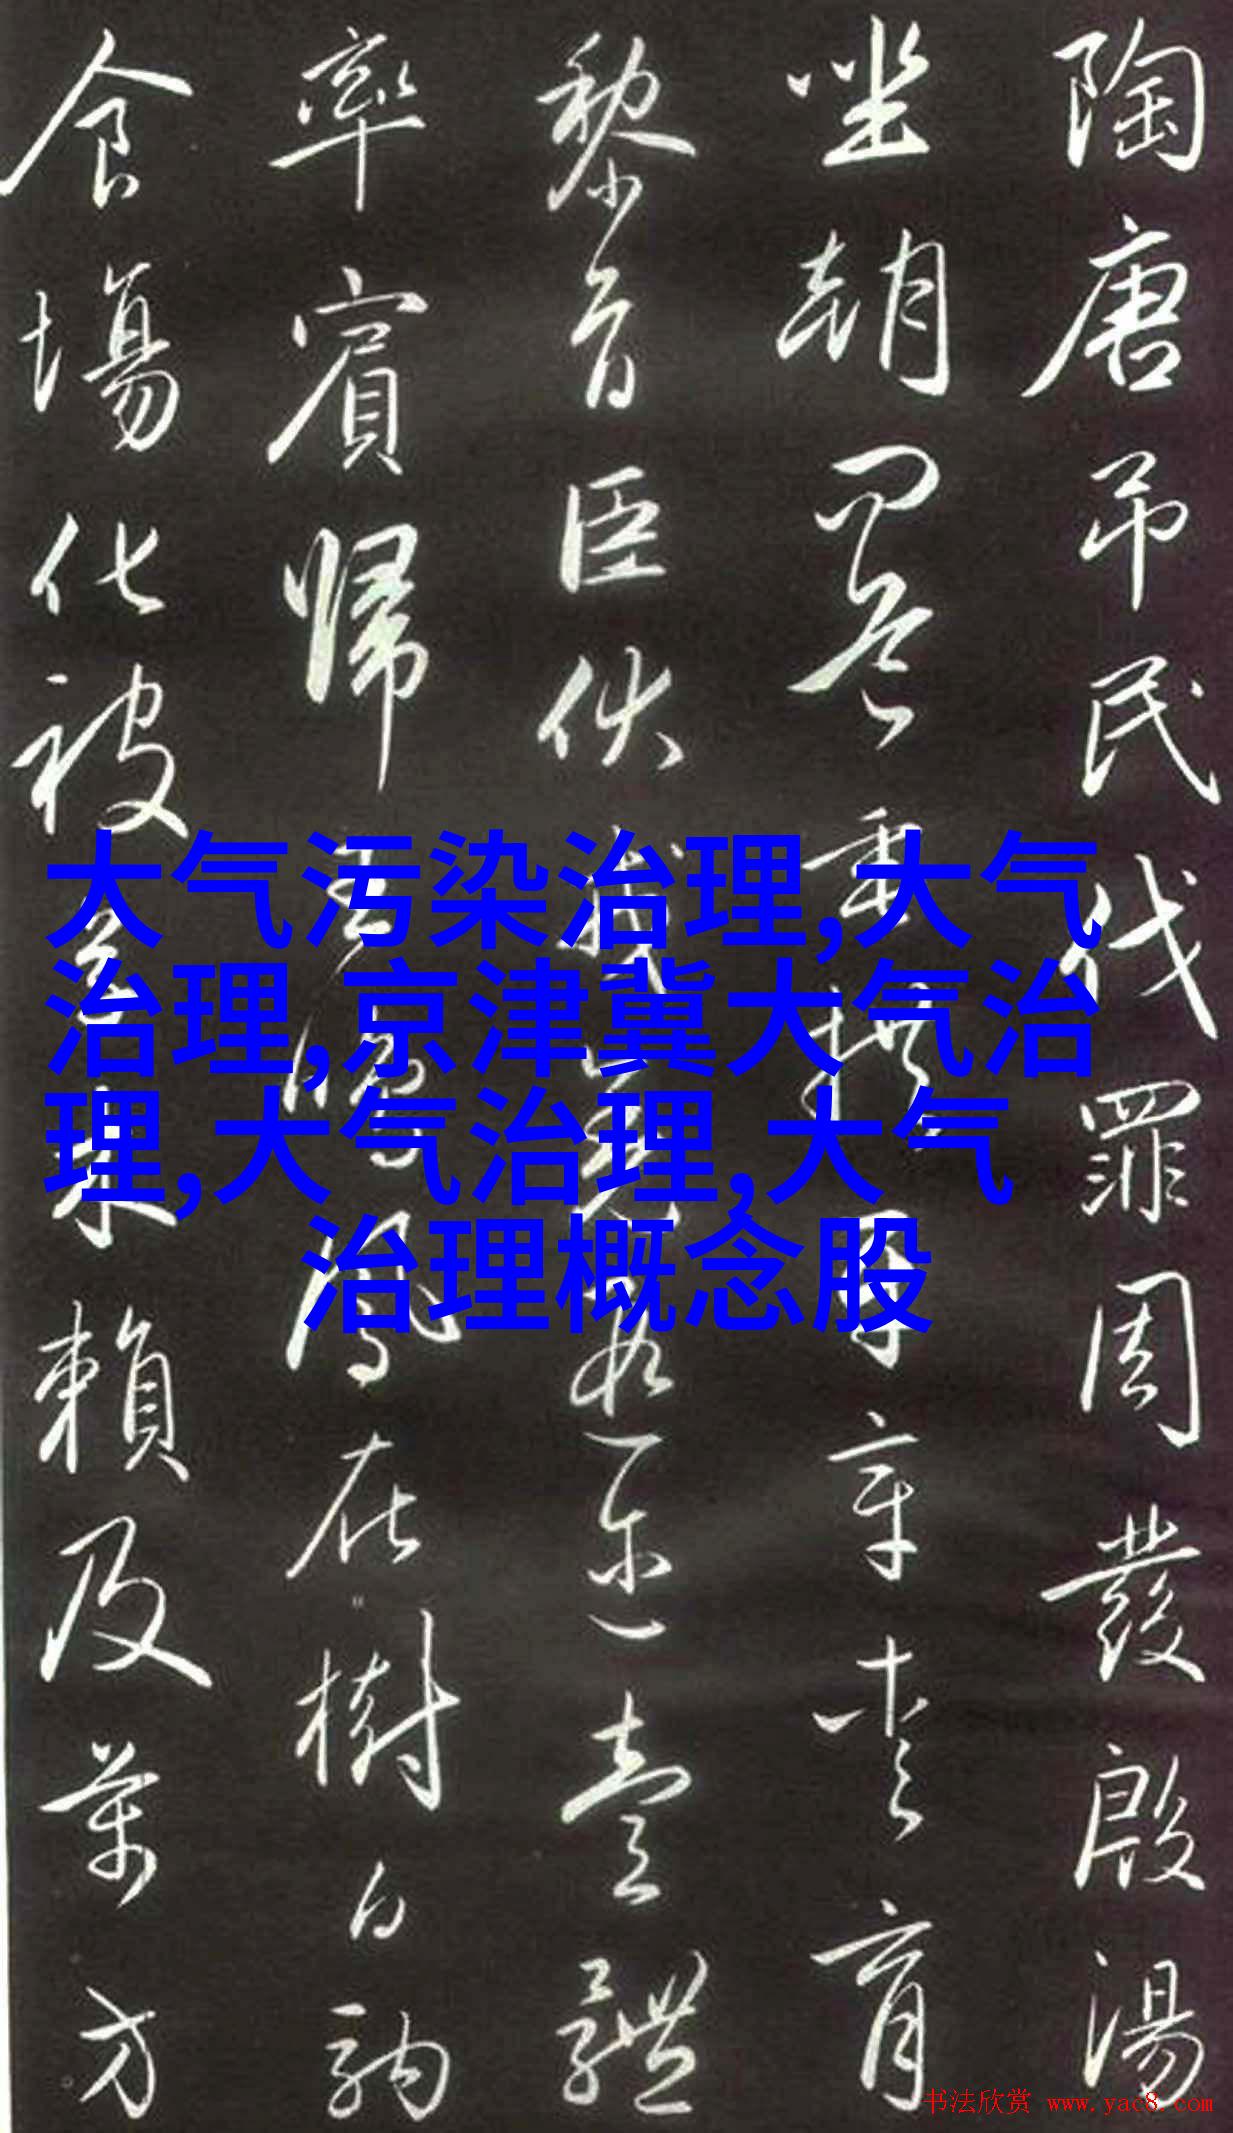 陶唐吊民伐罪周發殷湯
坐朝問道垂拱平章愛育
黎首臣伏戎羌遐迩壹體
率賓歸王鳴鳳在樹白駒
食場化被草木賴及萬方
大气污染治理,大气
治理,京津冀大气治
理,大气治理,大气
治理概念股
书法欣赏 www.yac8.com